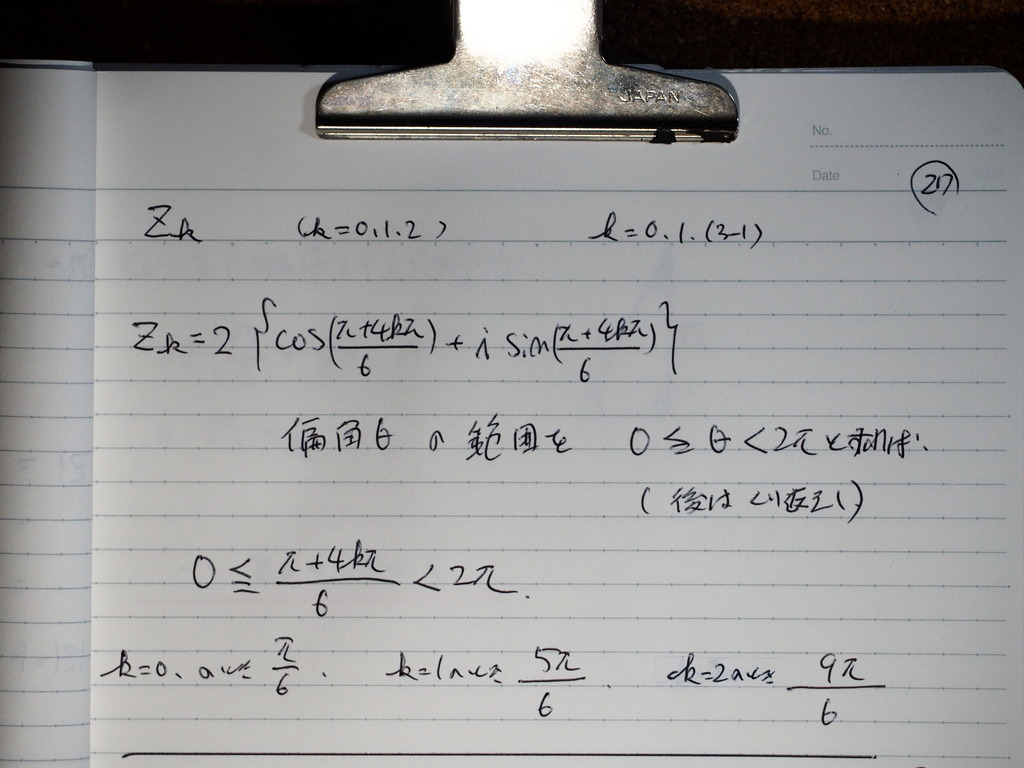 JAPAN
No.
Date
217
Zk (k=0.1.2) k=0.1.(3-1)
Zk=2{cos(π+4kπ/6)+i sin(π+4kπ/6)}
偏角θの範囲を 0≤θ<2πとすれば、
(後はくり返し)
0≦π+4kπ/6<2π.
k=0、のとき π/6. k=1のとき 5π/6. k=2のとき 9π/6